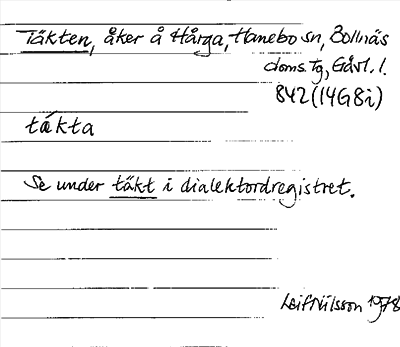 Täkten, åker å Hårga, Hanebo sn, Bollnäs
doms. tg, Gävl. l.
842 (14G8i)
täkta
Se under täkt i dialektordregistret.
Leif Nilsson 1978